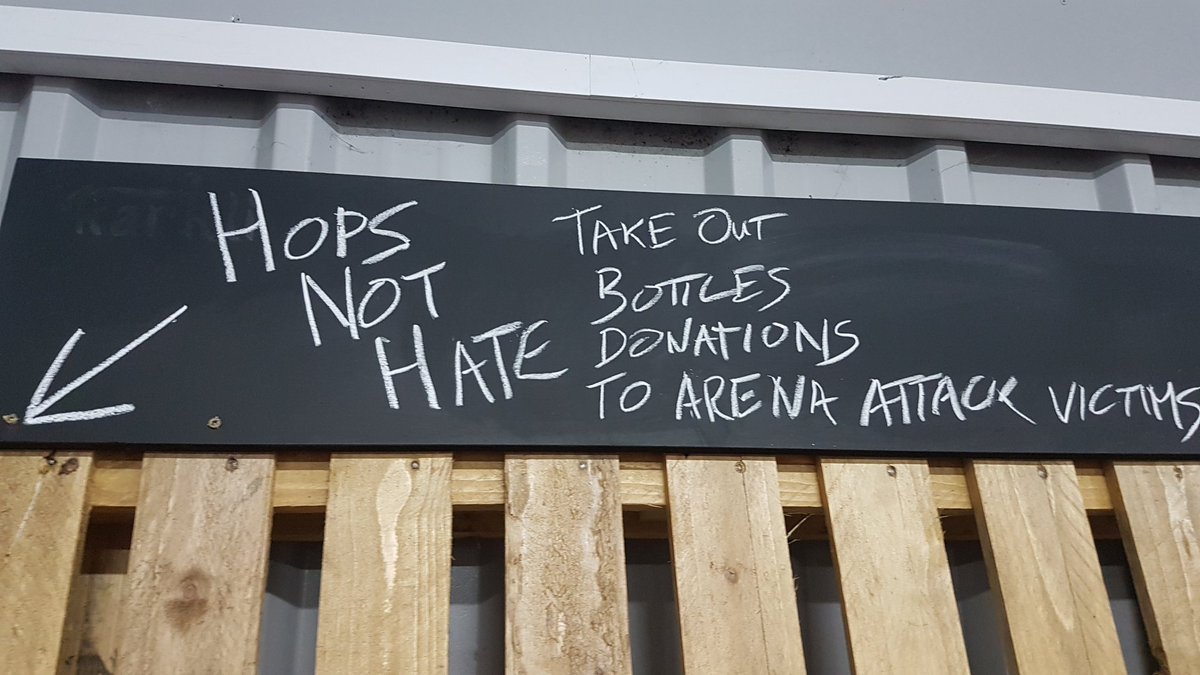 HOPS
NOT
HATE
TAKE OUT
BOTTLES
DONATIONS
TO ARENA ATTACK VICTIMS